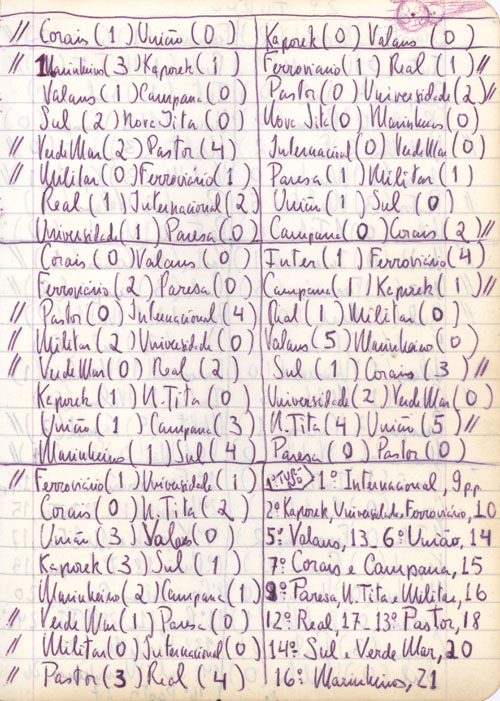 // Corais (1) União (0)
// Marinheiros (3) Kaporek (1)
Valans (1) Campana (0)
Sul (2) Nova Tita (0)
// Verde Mar (2) Pastor (4)
// Militar (0) Ferroviário (1)
Real (1) Internacional (2)
Universidade (1) Paresa (0)
Kaporek (0) Valans (0)
Ferroviário (1) Real (1) //
Pastor (0) Universidade (2) //
Nova Tita (0) Marinheiros (0)
Internacional (0) Verde Mar (0)
Paresa (1) Militar (1)
União (1) Sul (0)
Campana (0) Corais (2) //
Corais (0) Valans (0)
Ferroviário (2) Paresa (0)
// Pastor (0) Internacional (4)
// Militar (2) Universidade (0)
// Verde Mar (0) Real (2)
Kaporek (1) N. Tita (0)
União (1) Campana (3)
Marinheiros (1) Sul (4)
Inter (1) Ferroviário (4)
Campana (1) Kaporek (1) //
Real (1) Militar (0)
Valans (5) Marinheiro (0)
Sul (1) Corais (3) //
Universidade (2) Verde Mar (0)
N. Tita (4) União (5) //
Paresa (0) Pastor (0)
// Ferroviário (1) Universidade (1)
Corais (0) N. Tita (2)
União (3) Valans (0)
Kaporek (3) Sul (1)
Marinheiro (2) Campana (1)
// Verde Mar (1) Paresa (0)
// Militar (0) Internacional (0)
// Pastor (3) Real (4)
1º TURNO 1º Internacional, 9pp
2º Kaporek, Universidade, Ferroviário, 10
5º Valans, 13_ 6º União, 14
7º Corais e Campana, 15
9º Paresa, N. Tita e Militar, 16
12º Real, 17_ 13º Pastor, 18
14º Sul e Verde Mar, 20
16º Marinheiros, 21